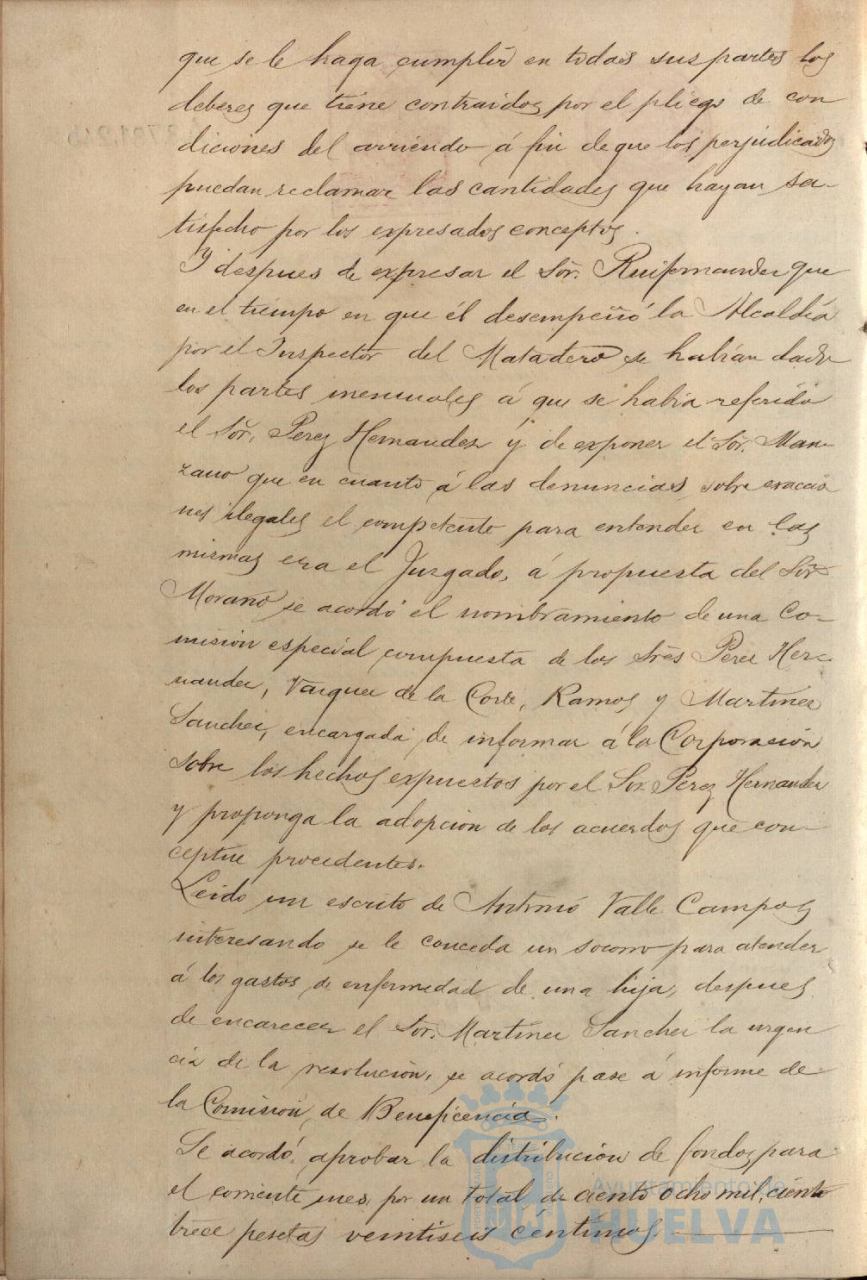 que se le haga cumplir en todas sus partes los
deberes que tiene contraidos por el pliego de con
diciones del arriendo á fin de que los perjudicados
puedan reclamar las cantidades que hayan sa-
tisfecho por los expresados conceptos.
Y despues de expresar el Sor. Ruifernandez que
en el tiempo en que él desempeñó la Alcaldía
por el Inspector del Matadero se habían dado
los partes mensuales á que se habia referido
el Sor. Perez Hernandez y de exponer el Sor. Man-
zano que en cuanto á las denuncias sobre exaccio
nes ilegales el competente para entender en las
mismas era el Juzgado, á propuesta del Sor
Morano se acordó el nombramiento de una Co-
misión especial compuesta de los Sres Perez Her-
nandez, Vazquez de la Corte, Ramos y Martinez
Sanchez, encargada de informar á la Corporación
sobre los hechos expuestos por el Sor. Perez Hernandez
y proponga la adopcion de los acuerdos que con-
ceptue procedentes.
Leido un escrito de Antonio Valle Campos
interesando se le conceda un socorro para atender
á los gastos de enfermedad de una hija, despues
de encarecer el Sor. Martinez Sanchez la urgen
cia de la resolución, se acordó pase á informe de
la Comisión de Beneficencia.
Se acordó aprobar la distribución de fondos para
el corriente mes, por un total de ciento ocho mil, ciento
trece pesetas veintiseis céntimos.
Ayuntamiento de
HUELVA